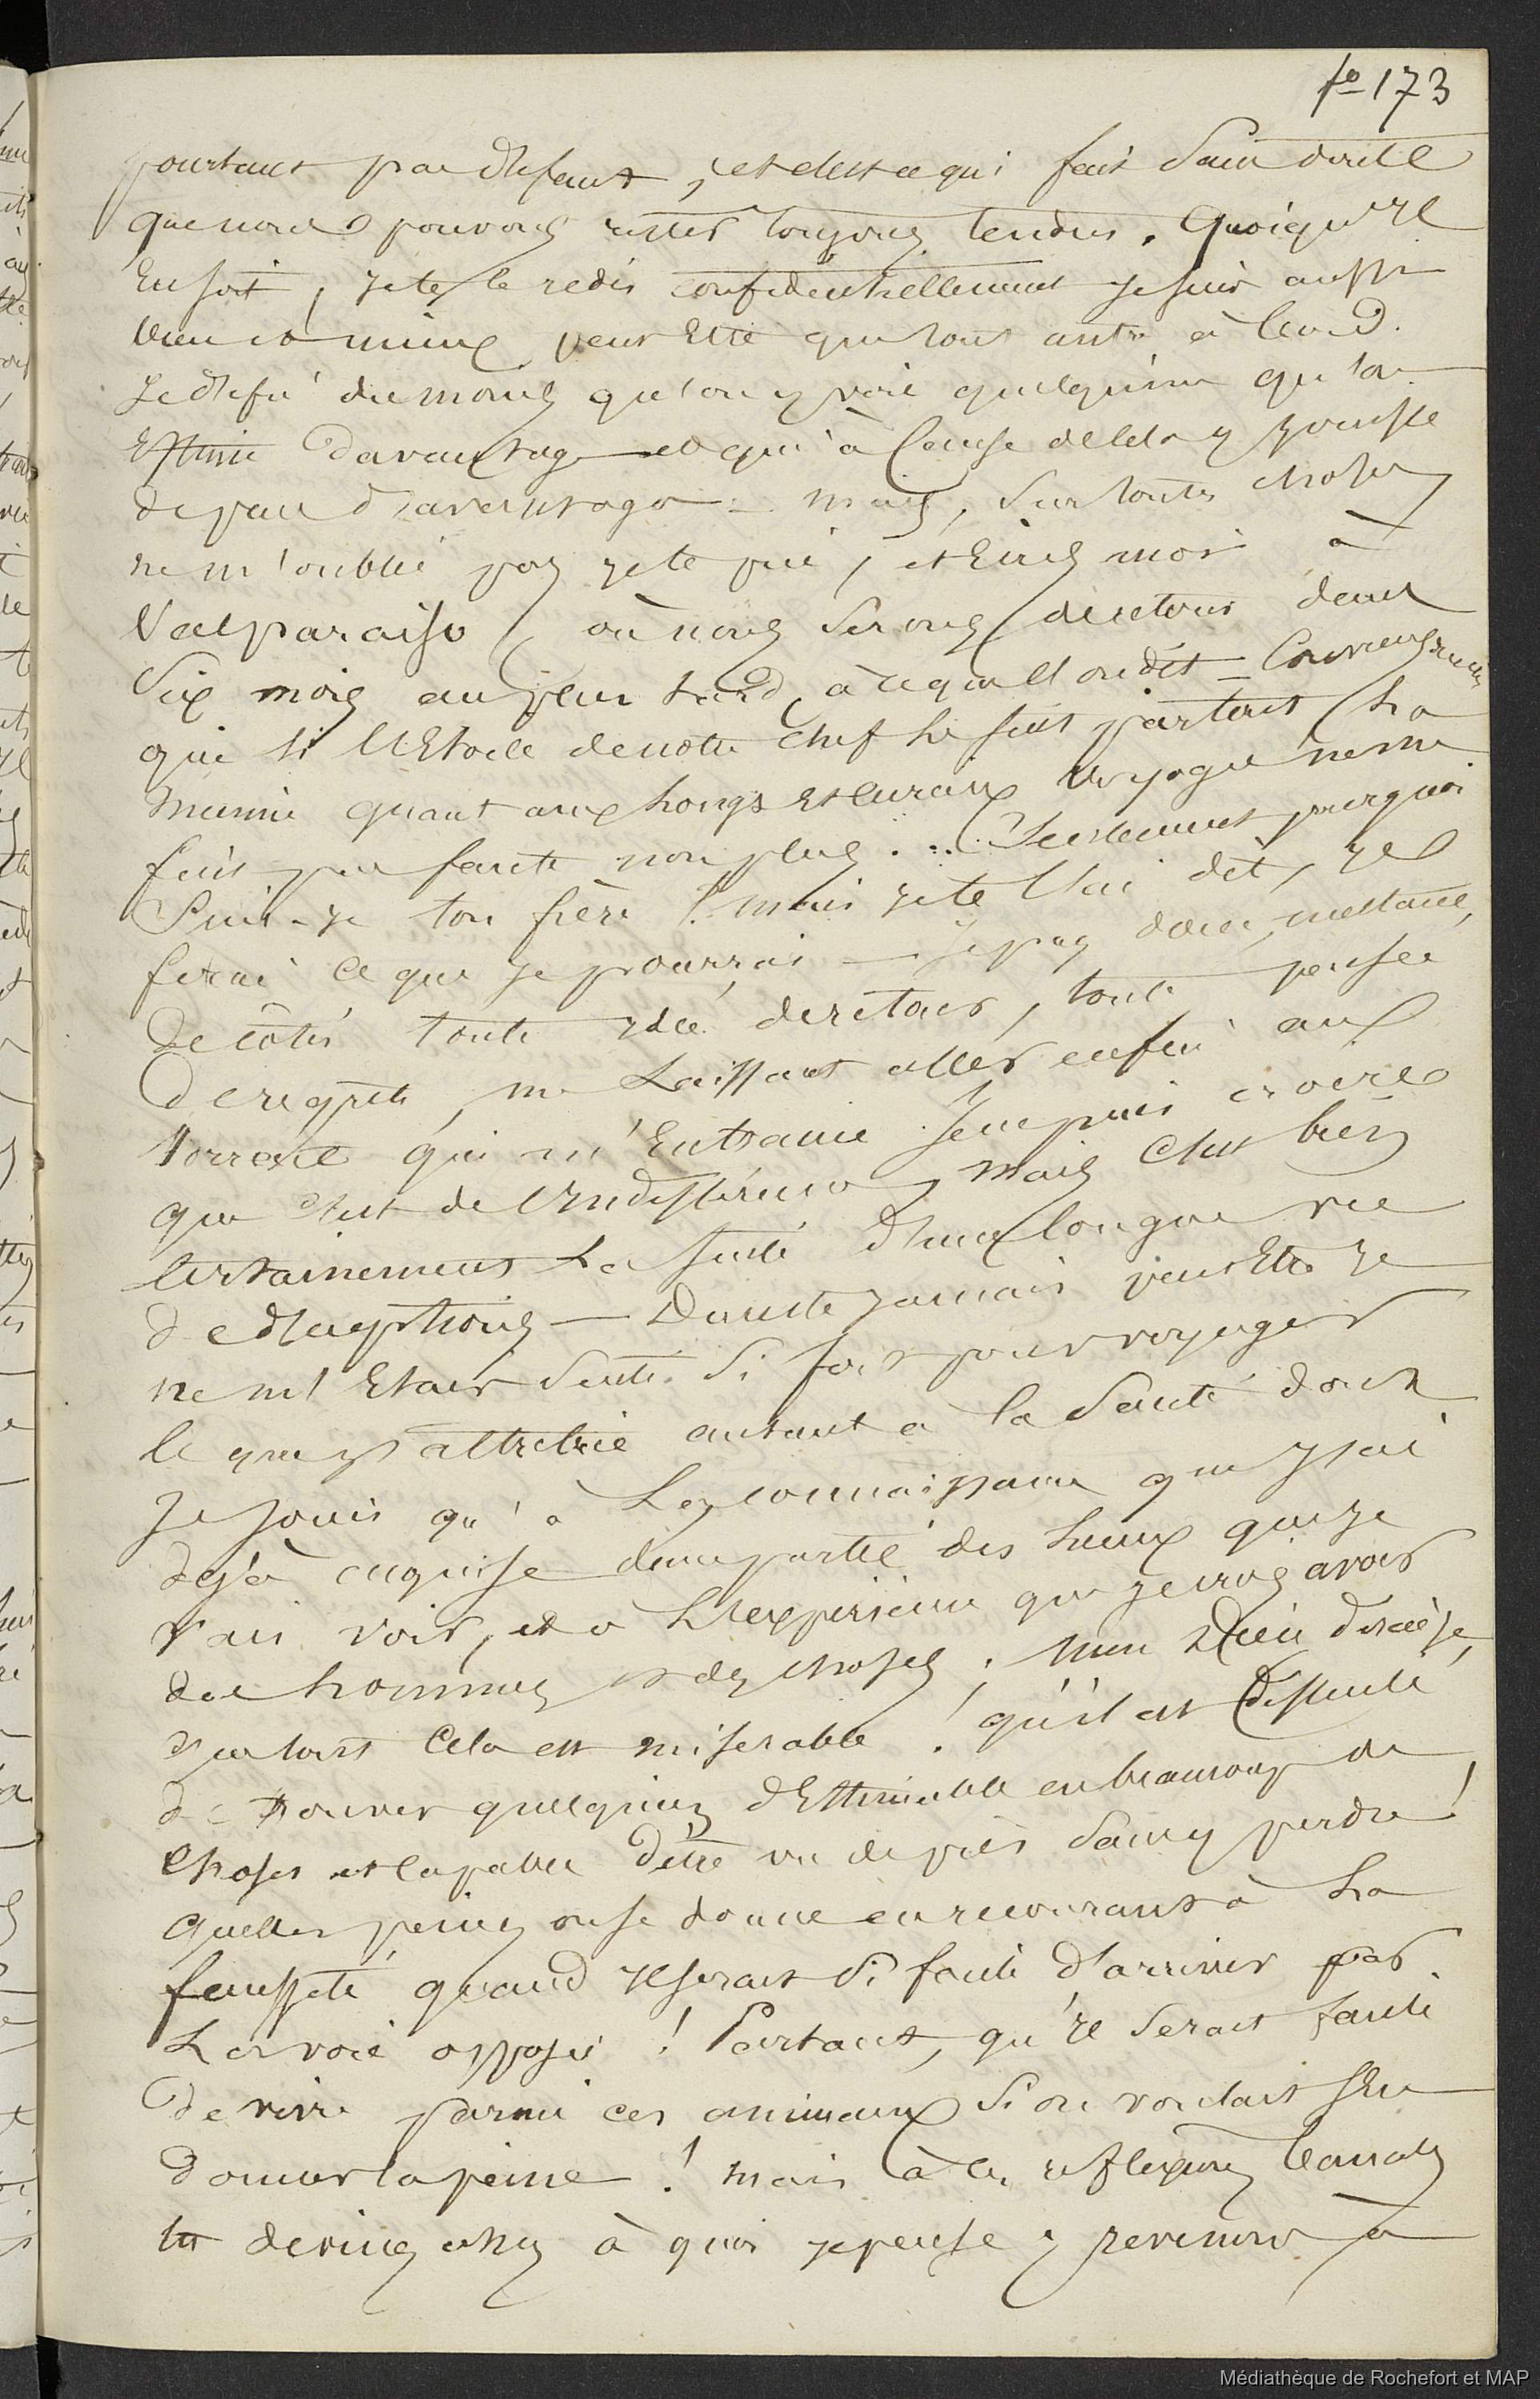 fo 173
pourtant pas défaut, et c'est ce qui fait sans doute
que nous pouvons rester toujours tendus. Quoiqu'il
en soit, je te le redis confidentiellement je suis aussi
bien et mieux peut être que tout autre à bord.
Je défie du moins que l'on y voie quelqu'un qu'on
estime davantage et qui à cause de cela y jouisse
de plus d'avantages – mais, surtout
ne m'oublie pas je te prie, écris moi à
Valparaiso, où nous serons de retour dans
six mois au plus tard, à ce que l'on dit –
que si l'Etoile de notre chef le suit partout, la
mienne quant aux longs et curieux voyages ne me
fait pas faute non plus... Seulement pourquoi
suis-je ton frère ! mais je te l'ai dit, je
ferai ce que je pourrai – donc, mettant
de côtés toute idée de retour, toute pensée
de regrets, me laissant aller enfin au
torrent qui m'entraine. Je ne puis croire
que c'est de l'indifférence, mais c'est bien
certainement la suite d'une longue vie
de déceptions – Du reste jamais peut être je
ne m'étais senti si fort pour voyager
ce que j'attribue autant à la santé dont
je jouis qu'à la connaissance que j'ai
dejà acquise d'une partie des lieux que je
vais voir, et à l'expérience que je crois avoir
des hommes et des choses. Mon Dieu
que tout cela est miserable ! qu'il est difficile
de trouver quelqu'un d'estimable en beaucoup de
choses et capable d'être vu de près sans y perdre !
quelles peines on se donne en recourant à la
fausseté quand il serait si facile d'arriver par
la voie opposée ! Partant, qu'il serait facile
de vivre parmi ces animaux si on voulait s'en
donner la peine ! mais à ces reflexions
tu devines à quoi je pense, revenons à